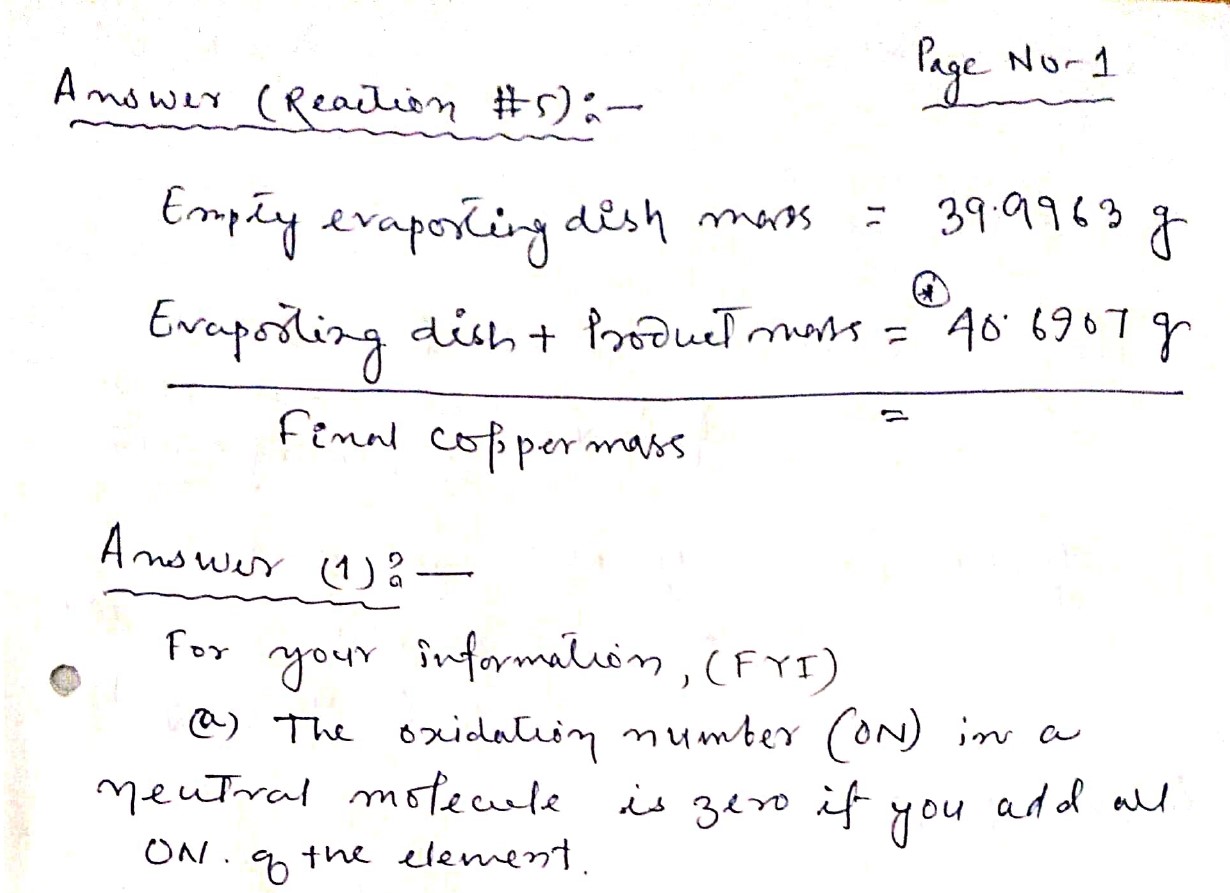 Page No-1
Answer (Reaction #5):-
Empty evaporting dish mass = 39.9963 g
Evaporting dish + Product mass = * 40.6907 g
Final copper mass =
Answer (1):-
For your information, (FYI)
(a) The oxidation number (ON) in a
neutral molecule is zero if you add all
ON. of the element.